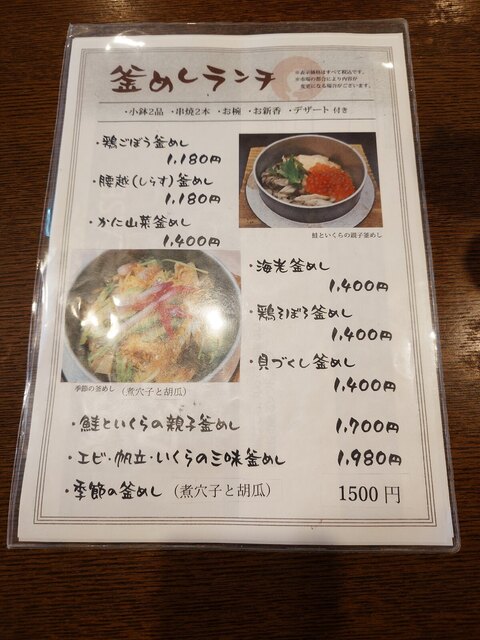 釜めしランチ
※表示価格はすべて税込です。
※市場の都合により内容が
変更になる場合がございます。
・小鉢2品 ・串焼2本 ・お椀 ・お新香 ・デザート 付き
・鶏ごぼう釜めし
1,180円
・腰越(しらす)釜めし
1,180円
・かに山菜釜めし
1,400円
鮭といくらの親子釜めし
・海老釜めし
1,400円
・鶏そぼろ釜めし
1,400円
・貝づくし釜めし
1,400円
季節の釜めし (煮穴子と胡瓜)
・鮭といくらの親子釜めし 1,700円
・エビ・帆立・いくらの三味釜めし 1,980円
・季節の釜めし (煮穴子と胡瓜) 1500円